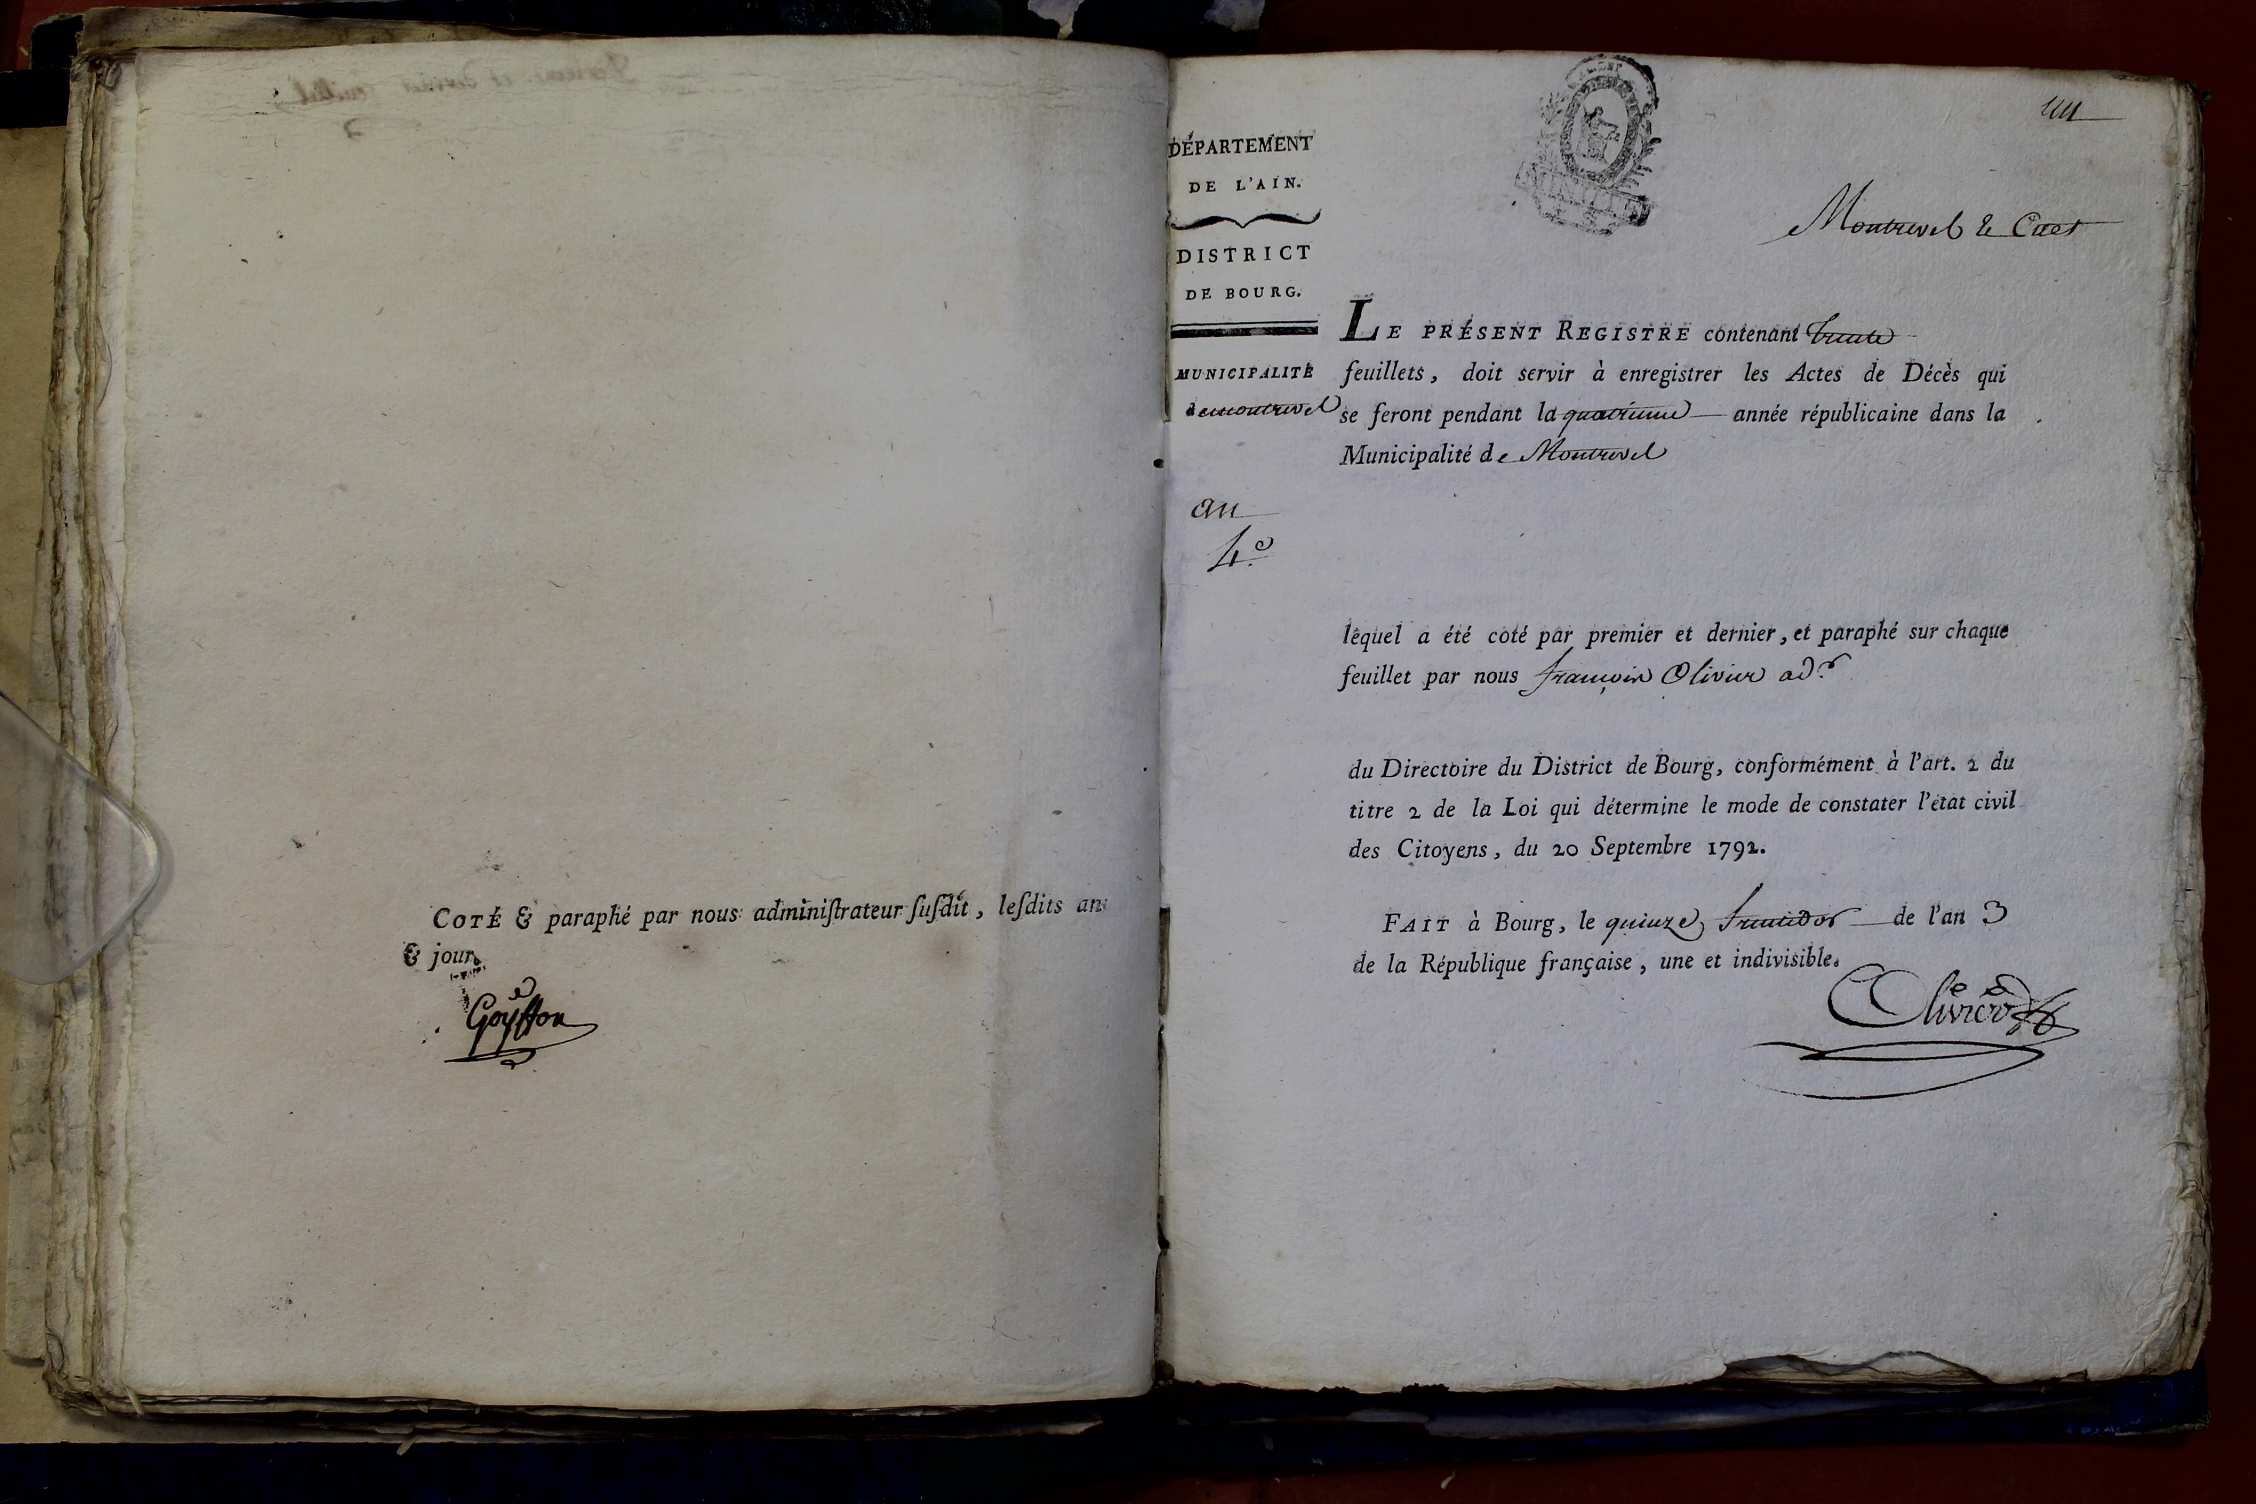 COTÉ & paraphé par nous adminiſtrateur ſuſdit, leſdits an
& jour.
Goyffon
DÉPARTEMENT
DE L'AIN.
DISTRICT
DE BOURG.
MUNICIPALITÉ
de Montrevel
an
4.e
un
Montrevel & Cuet
LE PRÉSENT REGISTRE contenant trente
feuillets, doit servir à enregistrer les Actes de Décès qui
se feront pendant la quatrieme année républicaine dans la
Municipalité de Montrevel
lequel a été coté par premier et dernier, et paraphé sur chaque
feuillet par nous françois Olivier ad.r
du Directoire du District de Bourg, conformément à l'art. 2 du
titre 2 de la Loi qui détermine le mode de constater l'état civil
des Citoyens, du 20 Septembre 1792.
FAIT à Bourg, le quinze fructidor de l'an 3
de la République française, une et indivisible.
Olivier